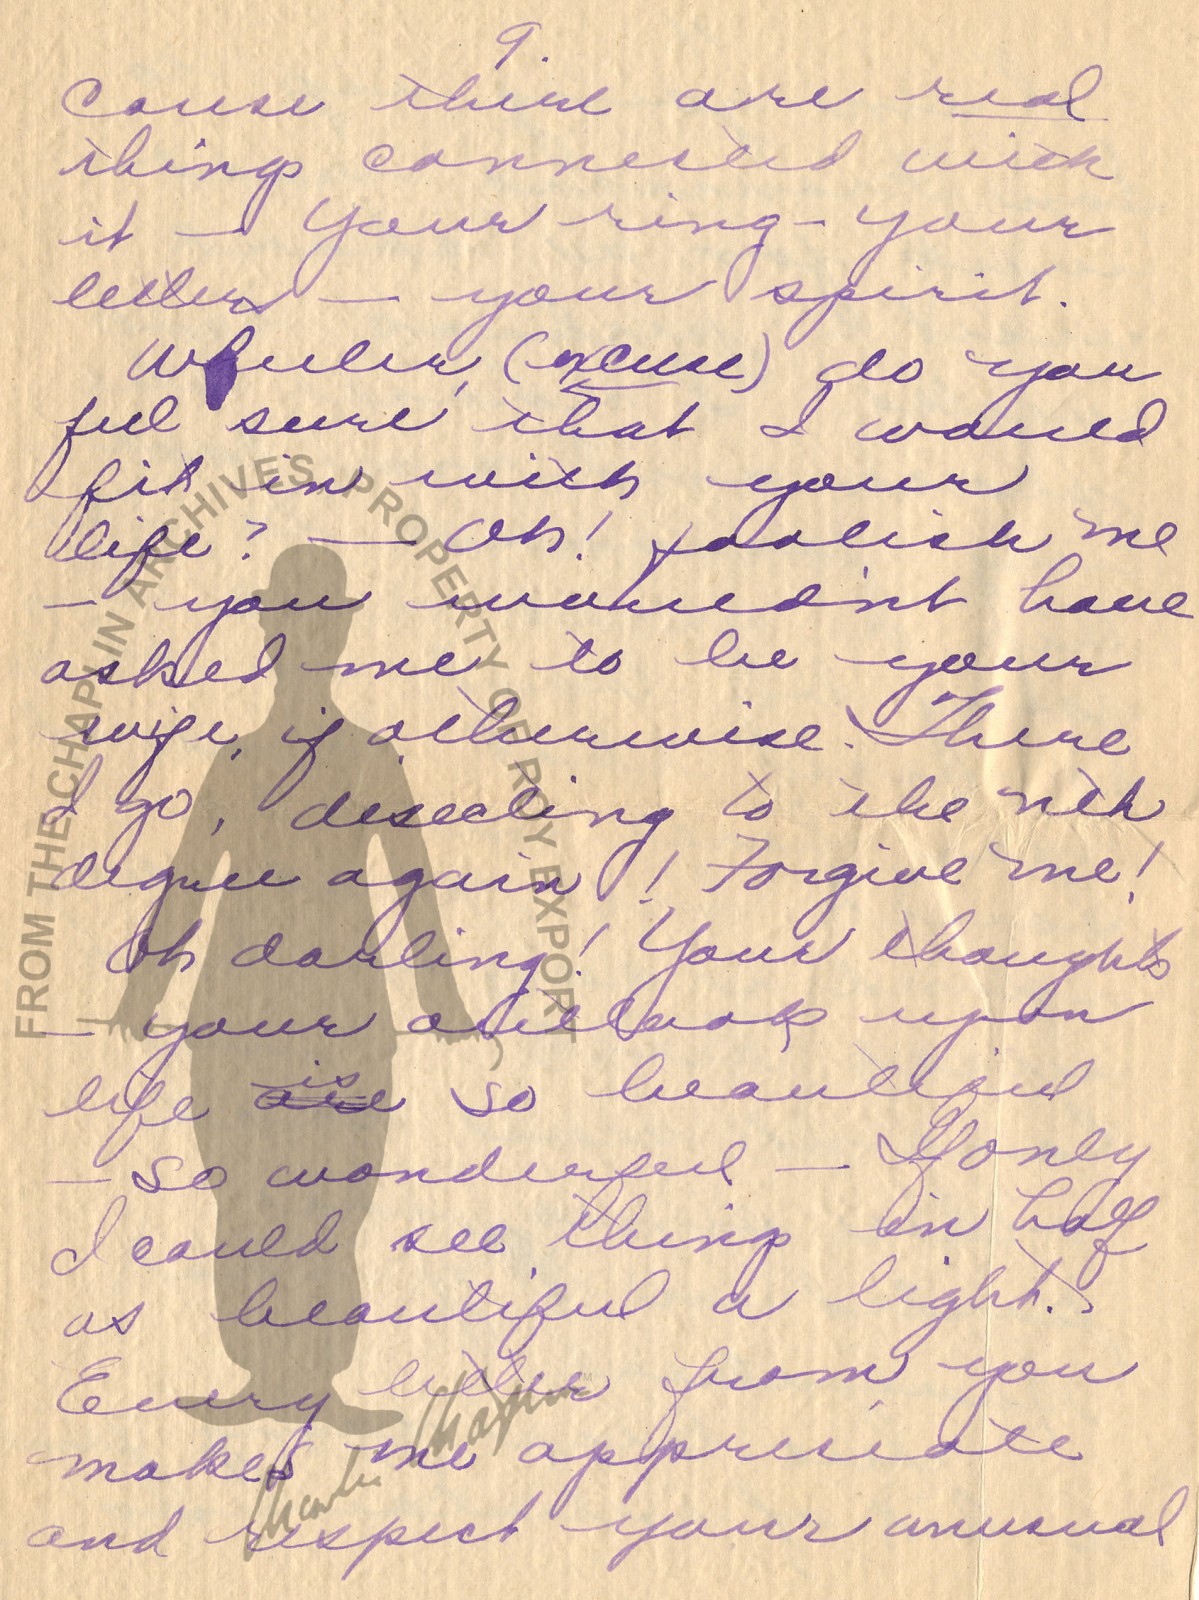 9.
cause there are real
things connected with
it — Your ring - your
letters — your spirit.
Wheeler, (excuse) do you
feel sure that I would
fit in with your
life? — Oh! foolish me
— you wouldn't have
asked me to be your
wife, if otherwise. There
I go, disecting to the nth
degree again! Forgive me!
Oh darling! Your thoughts
— your outlook upon
life are is so beautiful
— so wonderful — If only
I could see things in half
as beautiful a light.
Every letter from you
makes me appreciate
and respect your unusual
FROM THE CHAPLIN ARCHIVES, PROPERTY OF ROY EXPORT
Charlie Chaplin